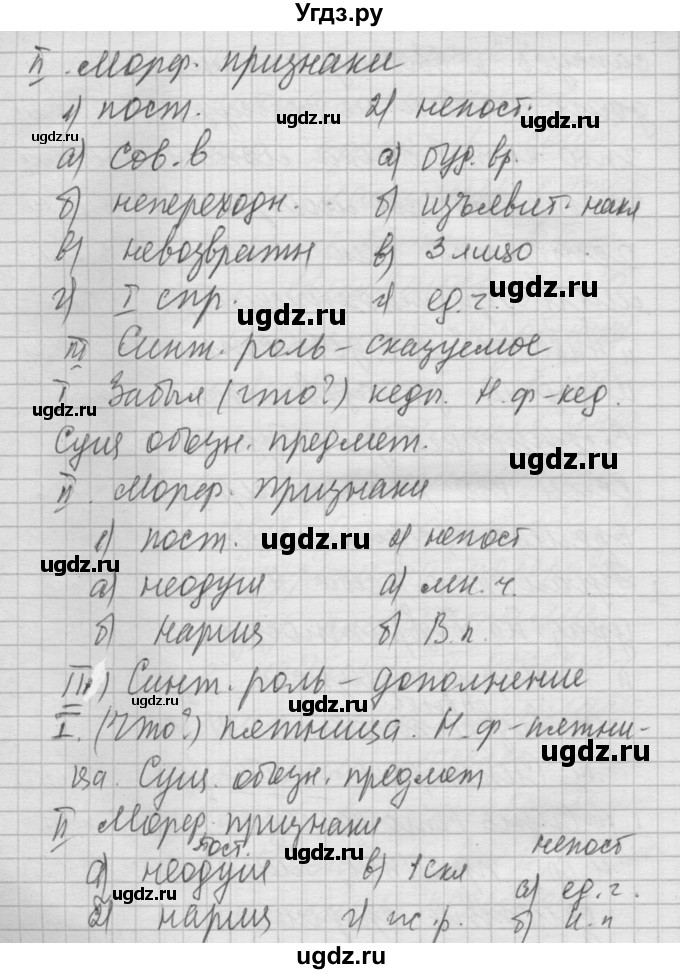 Угдз.ру
II. Морф. признаки
1) пост. 2) непост.
а) сов. в а) буд. вр.
б) непереходн. б) изъявит. накл
в) невозвратн в) 3 лицо
г) I спр. г) ед. ч.
III Синт. роль – сказуемое
I. Забыл (что?) кеды. Н. ф – кед.
Сущ обозн. предмет.
II. Морф. признаки
1) пост. 2) непост
а) неодуш а) мн. ч.
б) нариц б) В. п.
III) Синт. роль – дополнение
I. (Что?) пятница. Н. ф – пятни-
ца. Сущ. обозн. предмет
II Морф. признаки
пост. непост
а) неодуш в) 1 скл а) ед. ч.
2) нариц г) ж. р. б) И. п
ugdz.ru